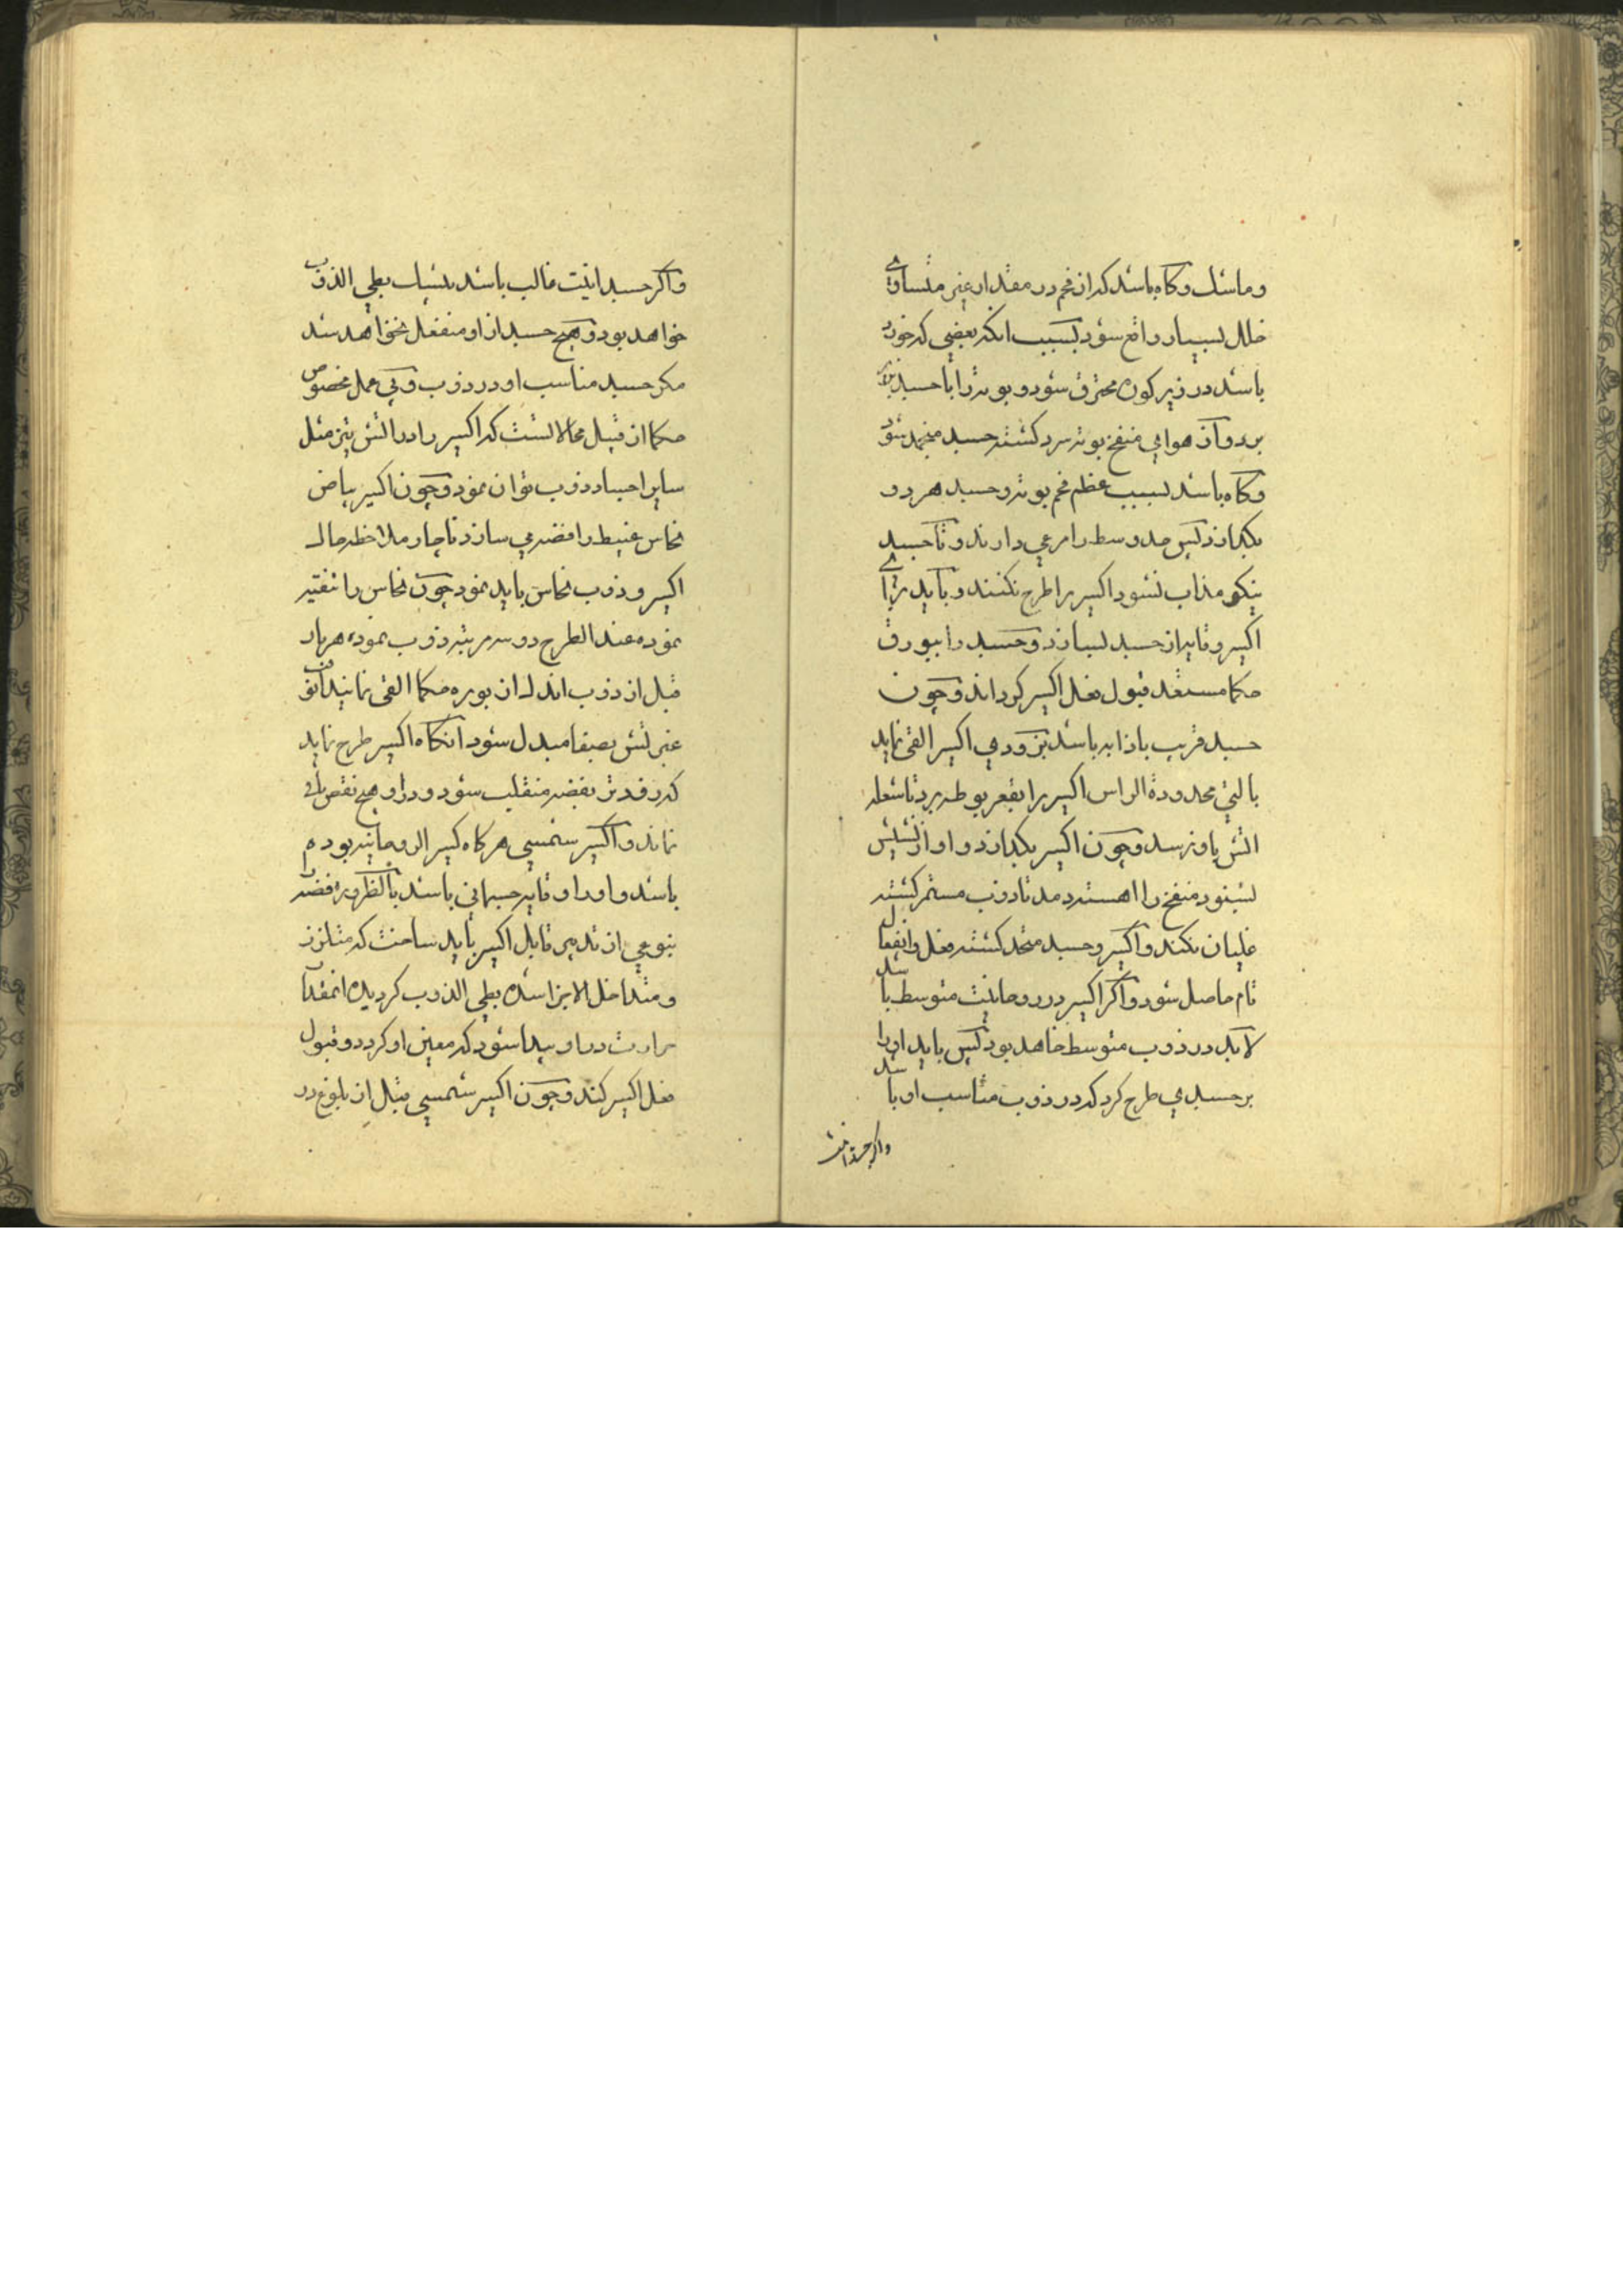 و ماشد و کاه باشد که از فحم در مقدار غیر متساوی
خلل بسیار واقع شود بسبب انکه بعضی که خورد
باشد در زیر کوره محترق شود و بوته را با جسد
برد و آن هوای منفخ بوته سرد کشته جسد منجمد شود
و کاه باشد بسبب عظم فحم بوته و جسد هر دو
بکدازد پس حد وسط را مرعی دارند و تا جسد
نیکو مذاب نشود اکسیر را طرح نکنند و باید برای
اکسیر و تابه از جسد بسازد و جسد را ببورق
حکما مستعد قبول فعل اکسیر کرداند و چون
جسد قریب باذابه باشد بزودی اکسیر القی نماید
بالتی محدودة الراس اکسیر را بقعر بوطه برد تا شعله
اتش باو نرسد و چون اکسیر بکدازد و اواز نشیش
بشنود منفخ را اهسته دمد تا ذوب مستمر کشته
غلیان نکند و اکسیر و جسد متحد کشته فعل و انفعال
تام حاصل شود و اکر اکسیر در روحانیت متوسط باشد
لابد در ذوب متوسط خاهد بود پس باید اورا
بر جسدی طرح کرد که در ذوب مناسب او باشد
واکر جسدانیت
و اکر جسدانیت غالب باشد بطی الذوب
خواهد بود و هیچ جسد از او منفعل نخواهد شد
مکر جسد مناسب او در ذوب و عمل مخصوص
حکما از قبیل محالاتست که اکسیر را در اتش تیز مثل
سایر اجساد ذوب توان نمود و چون اکسیر بیاض
نحاس غبیط را فضه می سازد ناچار ملاحظه حال
اکسیر و ذوب نحاس باید نمود چون نحاس را تنقیه
نموده عند الطرح دو سه مرتبه ذوب نموده هر بار
قبل از ذوب اندک از بوره حکما القی نمایند تا
غبرتش بصفا مبدل شود آنکاه اکسیر طرح نماید
که زفرتش بفضه منقلب شود و در او هیچ نقص باقی
نماند و اکسیر شمسی هر کاه کبیر الروحانیه بوده
باشد و اورا وقایه جسمانی باشد بالضروره فضه را
بنوعی از تدبیر قابل اکسیر باید ساخت که متلزز
و متداخل الاجزا شده بطی الذوب کردیده انعقد تا
حرارت در او پیدا شود که معین او کردد و قبول
فعل اکسیر کند و چون اکسیر شمسی قبل از بلوغ در